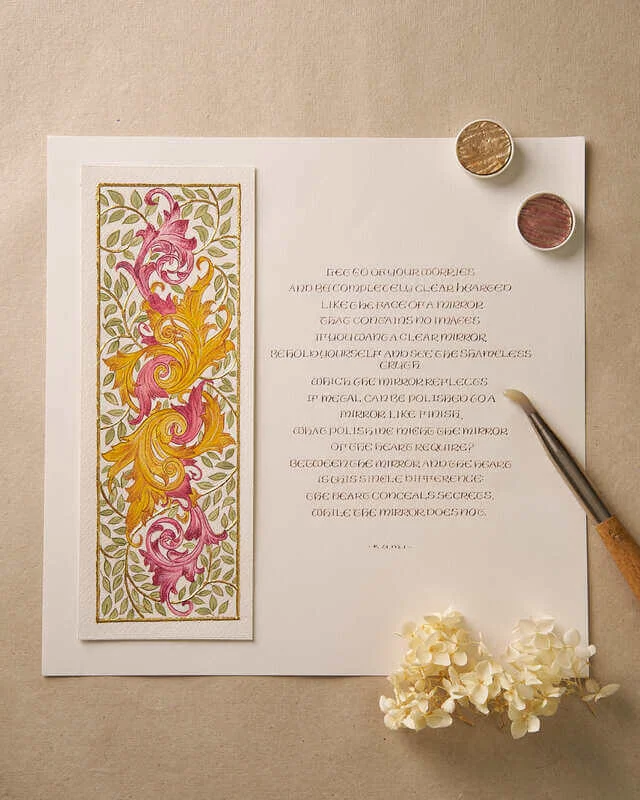 LET GO OF YOUR WORRIES
AND BE COMPLETELY CLEAR HEARTED
LIKE THE FACE OF A MIRROR
THAT CONTAINS NO IMAGES
IF YOU WANT A CLEAR MIRROR,
BEHOLD YOURSELF AND SEE THE SHAMELESS
TRUTH
WHICH THE MIRROR REFLECTS
IF METAL CAN BE POLISHED TO A
MIRROR-LIKE FINISH,
WHAT POLISHING MIGHT THE MIRROR
OF THE HEART REQUIRE?
BETWEEN THE MIRROR AND THE HEART
IS THIS SINGLE DIFFERENCE:
THE HEART CONCEALS SECRETS,
WHILE THE MIRROR DOES NOT.
- RUMI -